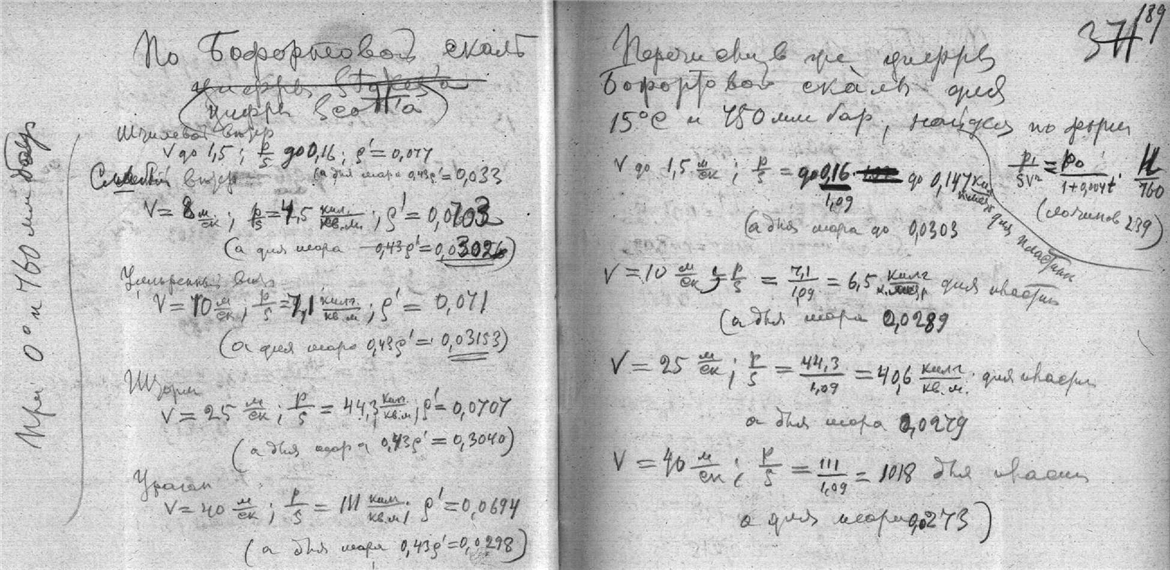 По Бофортовой скалѣ
цифры
(цифры Scott'а)
При 0° и 760 мм бар
Штилевой вѣтер
V до 1,5; p/s до 0,16; ρ' = 0,077
(а для шара 0,43ρ' = 0,033
Слабый вѣтер
V = 8 м/сек; p/s = 4,5 килг./кв.м.; ρ' = 0,0703
(а для шара 0,43ρ' = 0,03026)
Умѣренный вѣт.
V = 10 м/сек; p/s = 7,1 килг./кв.м.; ρ' = 0,071
(а для шара 0,43ρ' = 0,03153)
Шторм
V = 25 м/сек; p/s = 44,3 килг./кв.м.; ρ' = 0,0707
(а для шара 0,43ρ' = 0,3040)
Ураган
V = 40 м/сек; p/s = 111 килг./кв.м.; ρ' = 0,0694
(а для шара 0,43ρ' = 0,0298)
189
37
Перечислив же цифры
Бофортовой скалы для
15°C и 750 мм бар, найдем по форм
p₁/SV² = p₀/(1+0,004t) · H/760
V до 1,5 м/сек; p/s = до 0,16/1,09 до 0,147 для пластин
(239)
(а для шара до 0,0303
V = 10 м/сек; p/s = 7,1/1,09 = 6,5 килг/к.метр для пластин
(а для шара 0,0289
V = 25 м/сек; p/s = 44,3/1,09 = 40,6 килг/кв.м. для пластин
а для шара 0,0279
V = 40 м/сек; p/s = 111/1,09 = 1018 для пластин
а для шара 0,0273)